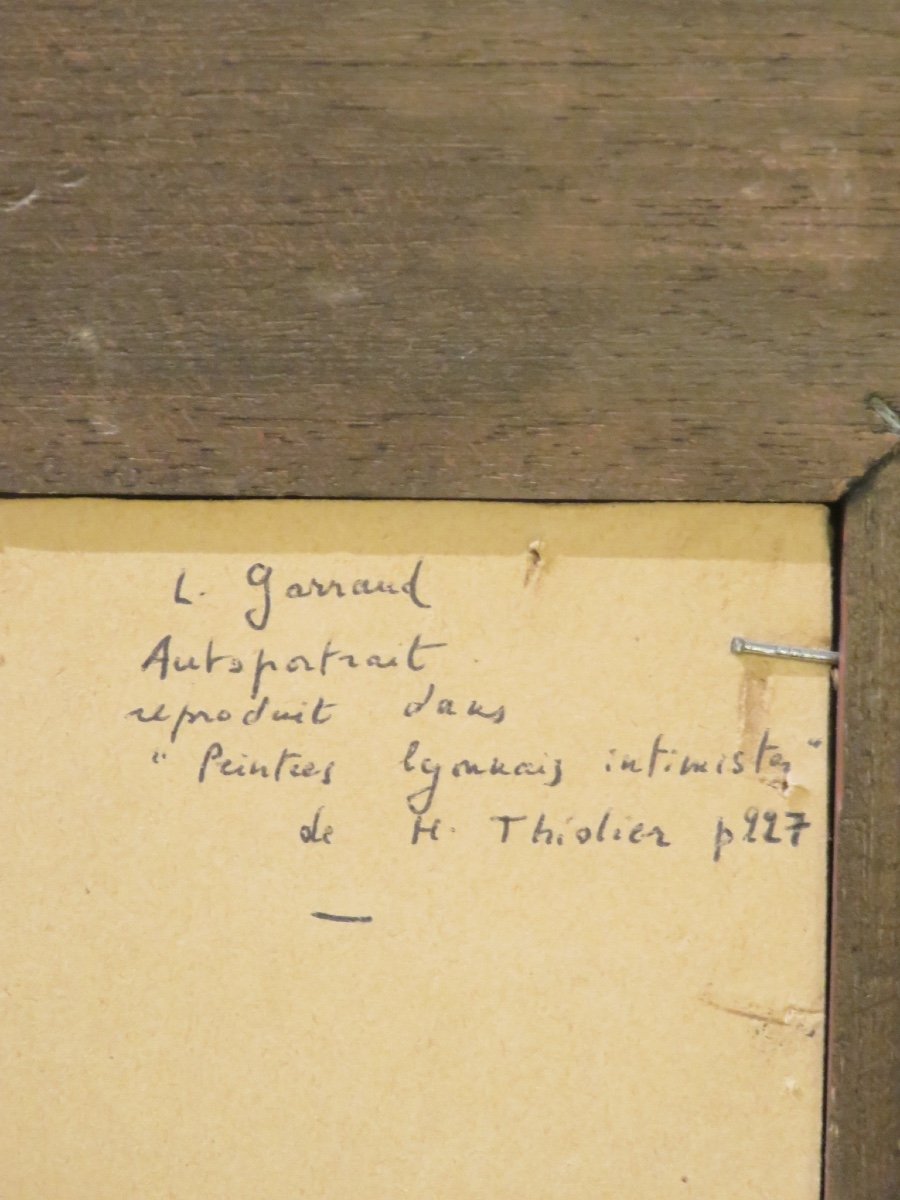 L. Garraud
Autoportrait
reproduit dans
"Peintres lyonnais intimistes"
de H. Thiolier p227